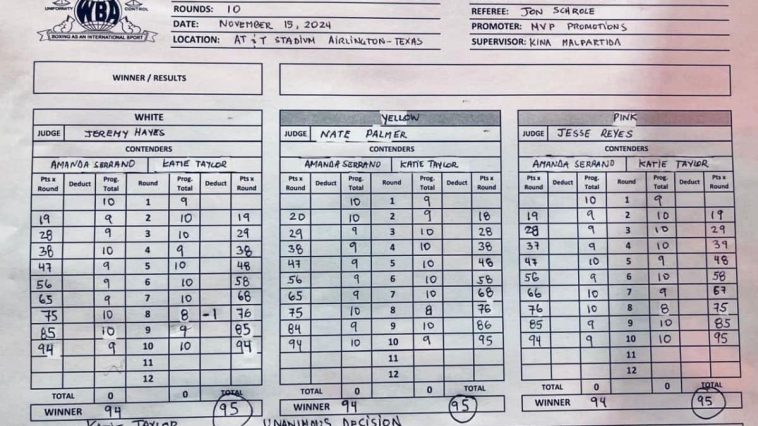 UNIFORMITY WBA CONTROL
BOXING AS AN INTERNATIONAL SPORT
ROUNDS: 10
DATE: NOVEMBER 15, 2024
LOCATION: AT&T STADIUM AIRLINGTON-TEXAS
REFEREE: JON SCHROLE
PROMOTER: MVP PROMOTIONS
SUPERVISOR: KINA MALPARTIDA
WINNER / RESULTS
WHITE
JUDGE JEREMY HAYES
CONTENDERS
AMANDA SERRANO KATIE TAYLOR
Pts x Round Deduct Prog. Total Round Prog. Total Deduct Pts x Round
10 1 9
19 9 2 10 19
28 9 3 10 29
38 10 4 9 38
47 9 5 10 48
56 9 6 10 58
65 9 7 10 68
75 10 8 8 -1 76
85 10 9 9 85
94 9 10 10 94
11
12
TOTAL 0 0 TOTAL
WINNER 94 95
YELLOW
JUDGE NATE PALMER
CONTENDERS
AMANDA SERRANO KATIE TAYLOR
Pts x Round Deduct Prog. Total Round Prog. Total Deduct Pts x Round
10 1 9
20 10 2 9 18
29 9 3 10 28
38 9 4 10 38
47 9 5 10 48
56 9 6 10 58
65 9 7 10 68
75 10 8 8 76
84 9 9 10 86
94 10 10 9 95
11
12
TOTAL 0 0 TOTAL
WINNER 94 95
PINK
JUDGE JESSE REYES
CONTENDERS
AMANDA SERRANO KATIE TAYLOR
Pts x Round Deduct Prog. Total Round Prog. Total Deduct Pts x Round
10 1 9
19 9 2 10 19
28 9 3 10 29
37 9 4 10 39
47 10 5 9 48
56 9 6 10 58
66 10 7 9 67
76 10 8 8 75
85 9 9 10 85
94 9 10 10 95
11
12
TOTAL 0 0 TOTAL
WINNER 94 95
KATIE TAYLOR UNANIMOUS DECISION